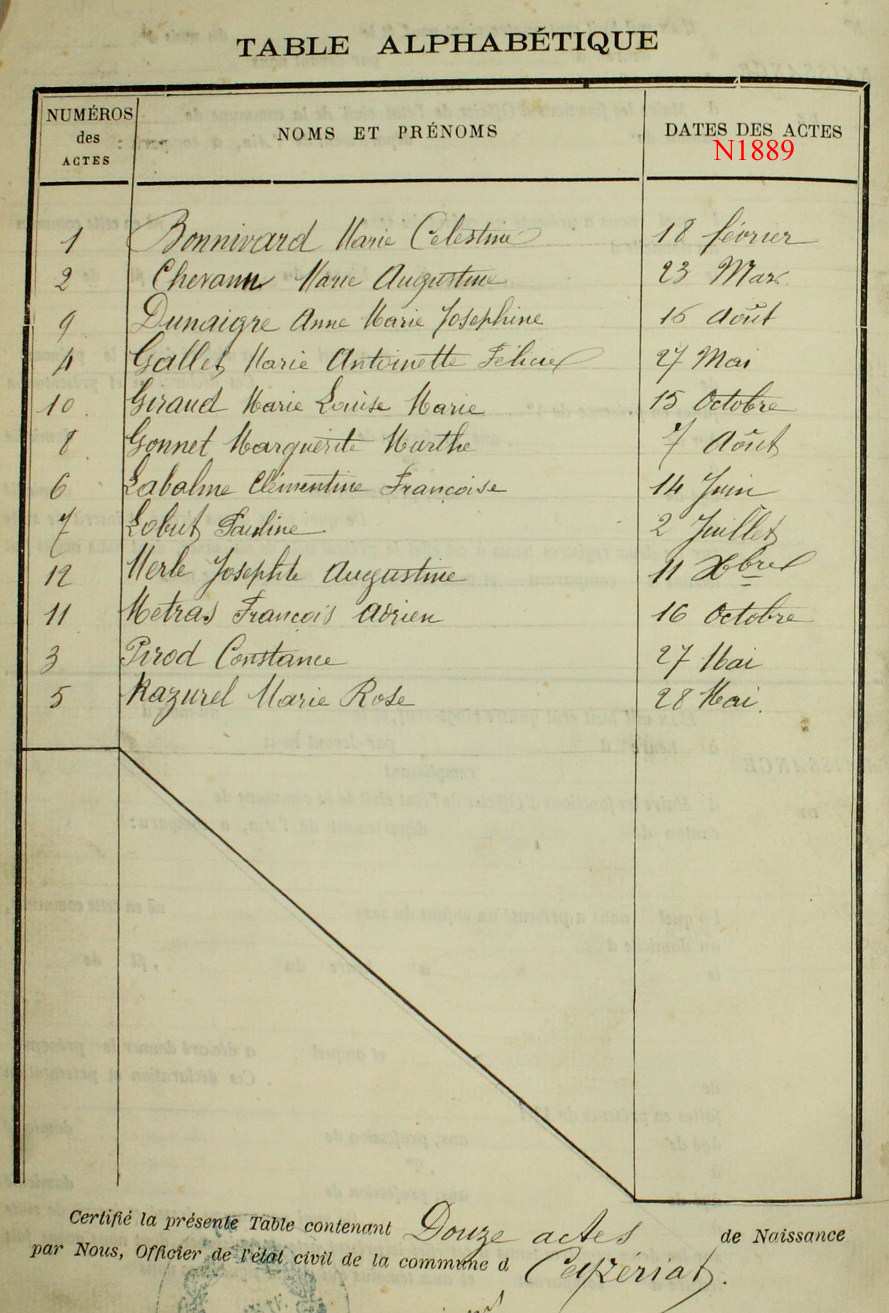 TABLE ALPHABÉTIQUE
NUMÉROS des ACTES NOMS ET PRÉNOMS DATES DES ACTES
N1889
1 Bonnivard Marie Célestine 18 février
2 Marie Augustine 23 Mars
9 Dunaigre Anne Marie Joséphine 16 Août
4 Gallet Marie Antoinette 27 Mai
10 Giraud Marie Louise Marie 15 Octobre
8 Gonnet Marguerite Marthe 7 Août
6 Labalme Clémentine Françoise 14 Juin
7 Lobut Pauline 2 Juillet
12 Merle Augustine 11 Xbre
11 Metras François Adrien 16 Octobre
3 Pirod Constance 27 Mai
5 Razurel Marie Rose 28 Mai.
Certifié la présente Table contenant Douze actes de Naissance
par Nous, Officier de l'état civil de la commune d Ceyzériat.